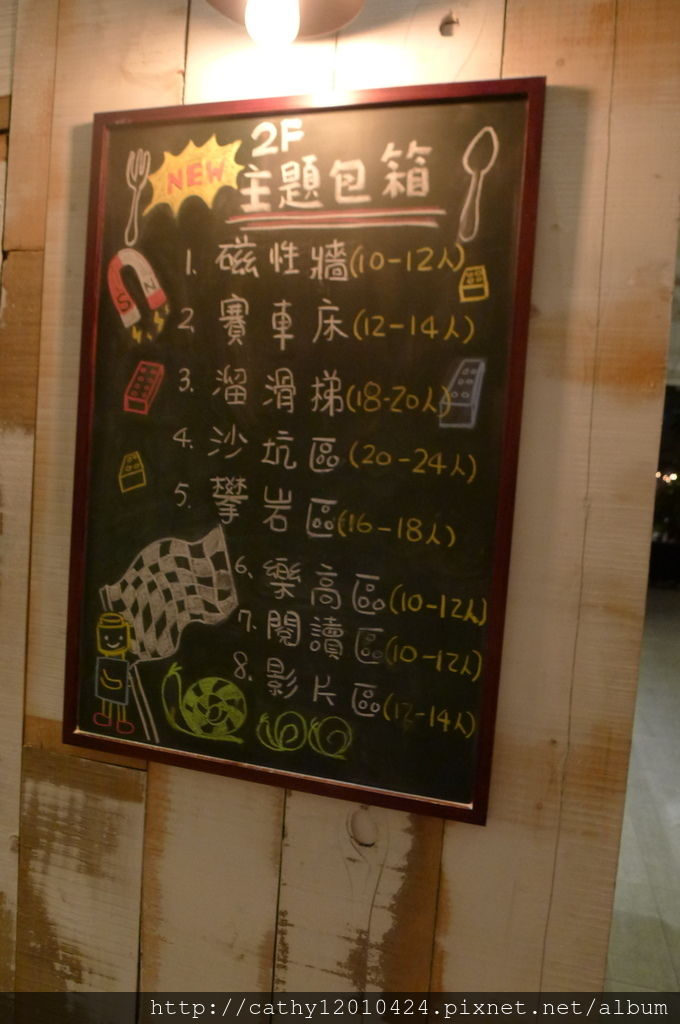 2F
NEW
主題包箱
1. 磁性牆(10-12人)
2. 賽車床(12-14人)
3. 溜滑梯(18-20人)
4. 沙坑區(20-24人)
5. 攀岩區(16-18人)
6. 樂高區(10-12人)
7. 閱讀區(10-12人)
8. 影片區(12-14人)
S N
http://cathy12010424.pixnet.net/album